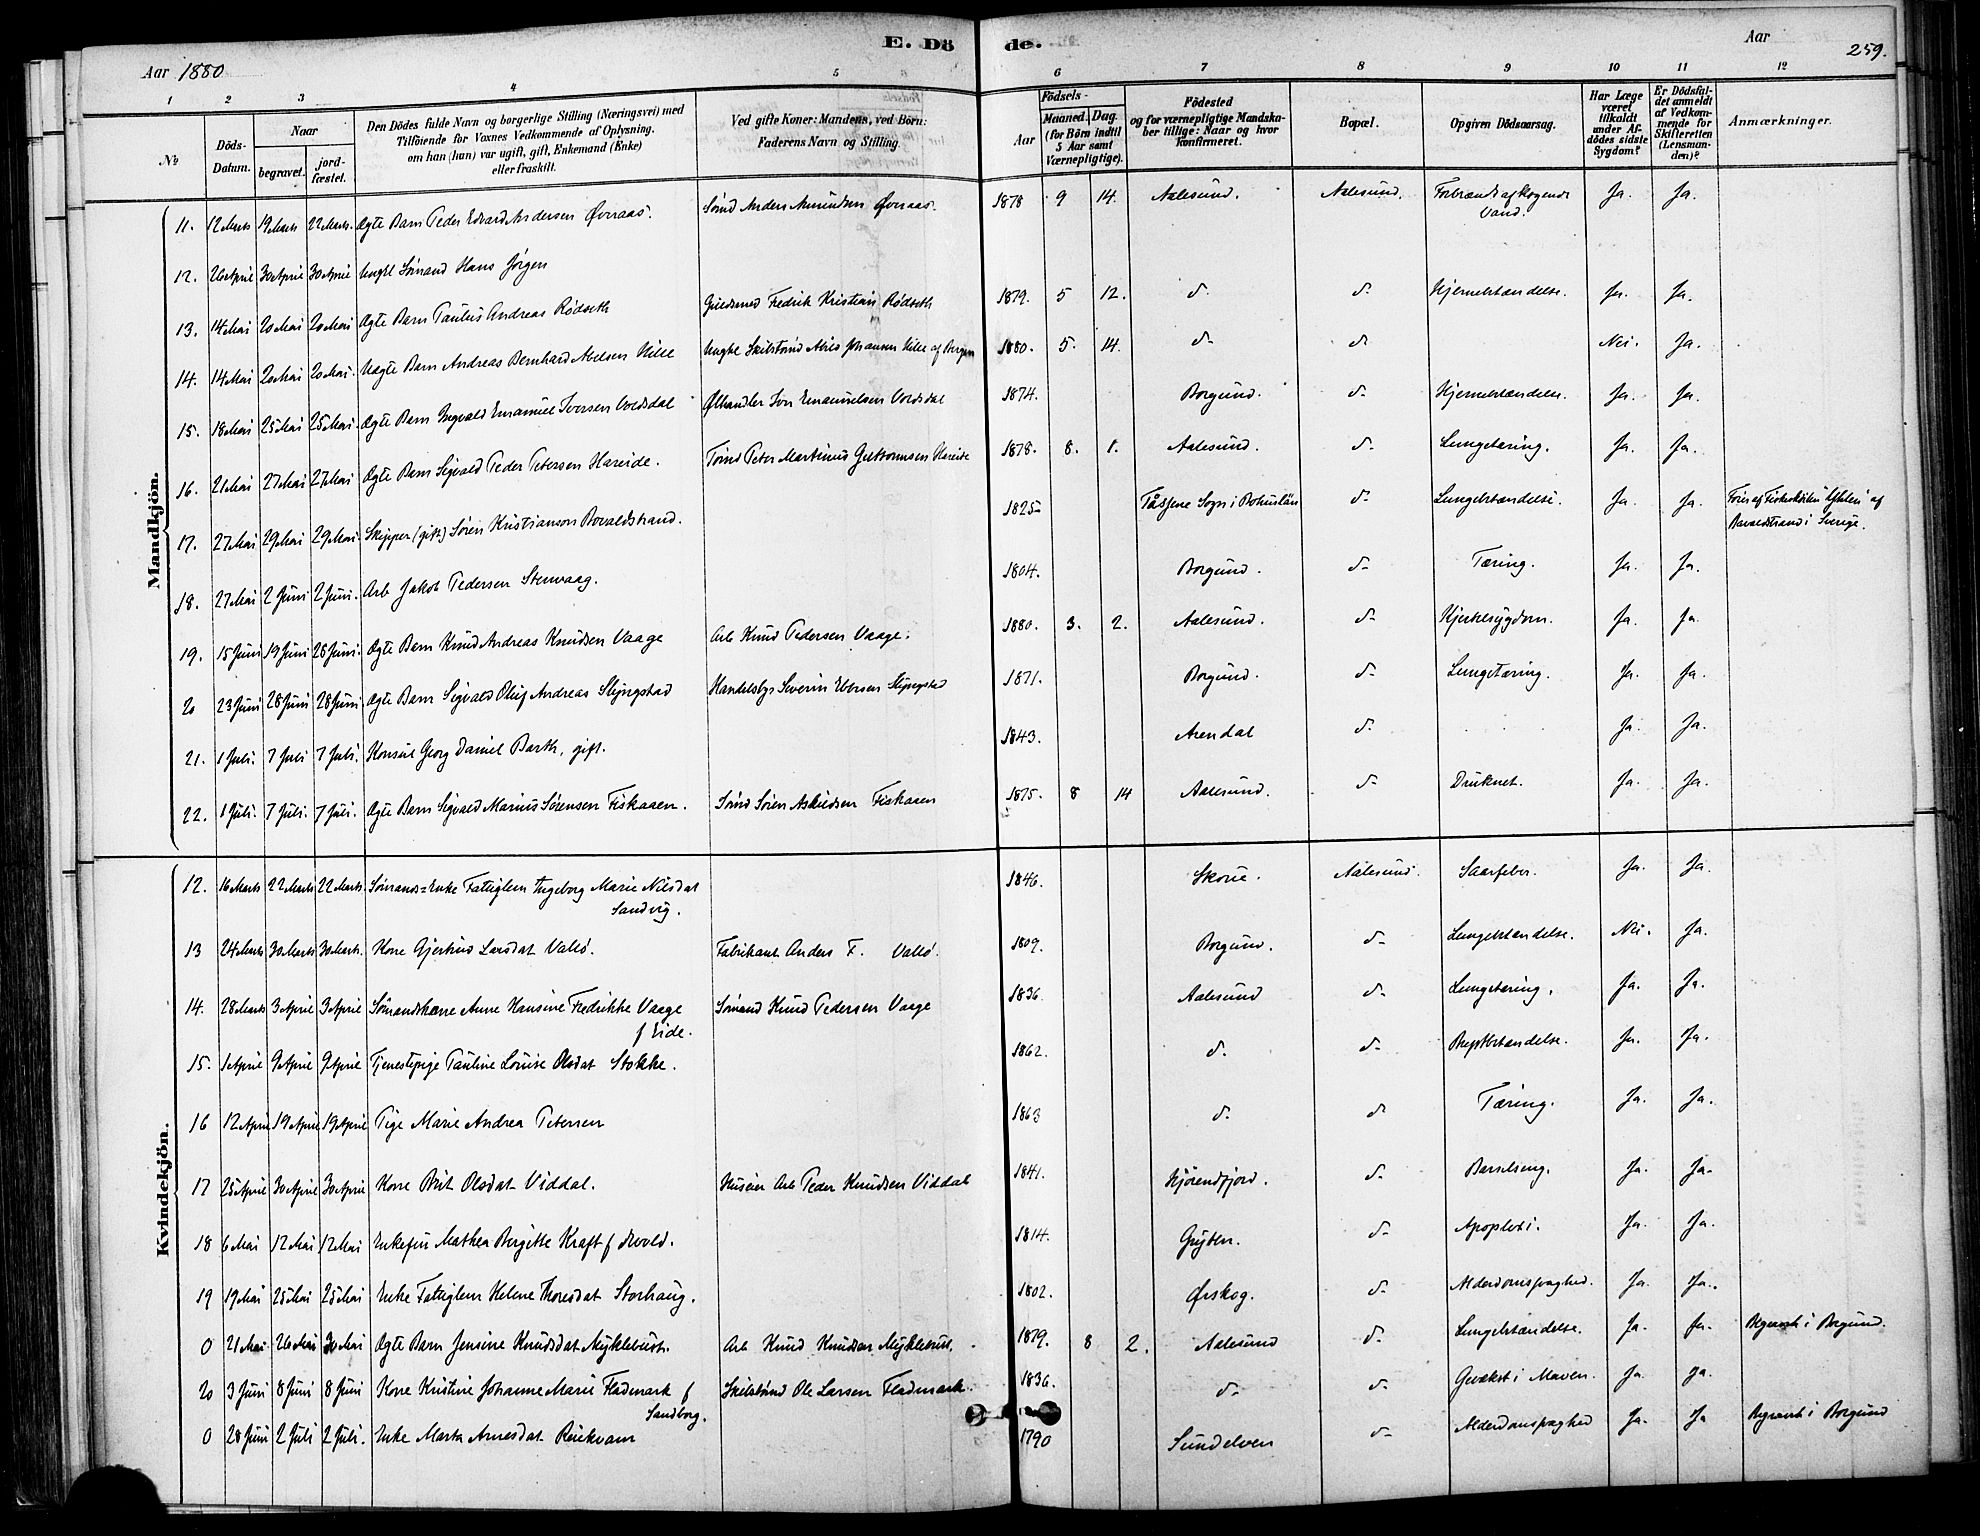 E. Dö de.
Aar 1880
Aar
259.
1 2 3 4 5 6 7 8 9 10 11 12
№
Döds-Datum.
Naar
begravet.
jordfæstet.
Den Dödes fulde Navn og borgerlige Stilling (Næringsvei) med
Tilföiende för Voxnes Vedkommende af Oplysning.
om han (hun) var ugift, gift, Enkemand (Enke)
eller fraskilt.
Ved gifte Koner: Mandens, ved Börn:
Faderens Navn og Stilling.
Födsels-
Aar
Maaned. Dag.
(for Börn indtil
5 Aar samt
Værnepligtige).
Födested
og for værnepligtige Mandska-
ber tillige: Naar og hvor
konfirmeret.
Bopæl.
Opgiven Dödsaarsag.
Har Læge
været
tilkaldt
under Af-
dödes sidste
Sygdom?
Er Dödsfal-
det anmeldt
af Vedkom-
mende for
Skifteretten
(Lensman-
den)?
Anmærkninger.
Mandkjön.
11. 12 Marts 19 Marts 22 Marts. Ægte Barn Peder Edvard Andersen Øvraas. Sömd Anders Amundsen Øvraas. 1878 9 14. Aalesund. Aalesund. Forbrændt af kogende Vand. Ja. Ja.
12. 26 April 30 April 30 April Sömand Hans Jörgen
13. 14 Mai 20 Mai 20 Mai Ægte Barn Paulus Andreas Rödseth Fredrik Kristian Rödseth 1879. 5 12. d. d. Hjernebetændelse. Ja. Ja.
14. 14 Mai 20 Mai 20 Mai. Uægte Barn Andreas Bernhard Abelsen Hille Johansen Hille af Bergen 1880. 5. 14. d. d. Nei. Ja.
15. 18 Mai 25 Mai 25 Mai. Ægte Barn Ingvald Emanuel Iversen Voldsdal Ølhandler Iver Emanuelsen Voldsdal 1874. Borgund. d. Hjernebetændelse. Ja. Ja.
16. 21 Mai 27 Mai 27 Mai. Ægte Barn Sigvald Peder Petersen Hareide. Peter Martinus Guttormsen Hareide 1878. 8. 1. Aalesund. d. Lungetæring. Ja. Ja.
17. 27 Mai 29 Mai 29 Mai. Skipper (gift) Sören Kristianson Bovaldstrand. 1825 Sogn i Bohuslän d. Lungebetændelse. Ja. Ja. i Sverige.
18. 27 Mai 2 Juni 2 Juni. Arb Jakob Pedersen Stenvaag. 1804. Borgund. d. Tæring. Ja. Ja.
19. 15 Juni 19 Juni 26 Juni. Ægte Barn Knud Andreas Knudsen Vaage Arb Knud Pedersen Vaage. 1880. 3. 2. Aalesund. d. Hjertesygdom. Ja. Ja.
20 23 Juni 28 Juni 28 Juni. Ægte Barn Sigvald Oluf Andreas Slyngstad Handelsbg Severin Ebersen Slyngstad 1871. Borgund. d. Lungetæring. Ja. Ja.
21. 1 Juli. 7 Juli 7 Juli. Konsul Georg Daniel Barth, gift. 1843. Arendal d. Ja. Ja.
22. 1 Juli. 7 Juli. 7 Juli. Ægte Barn Sigvald Marius Sörensen Fiskaaen. Sömd Sören Fiskaaen 1875. 8 14 Aalesund. d. Druknet. Ja. Ja.
Kvindekjön.
12. 16 Marts 22 Marts 22 Marts. Sömands=Enke Fattiglem Ingeborg Marie Nilsdat Sandvig. 1846. Skorue. Aalesund. Saarfeber. Ja. Ja.
13 24 Marts 30 Marts 30 Marts. Kone Gjertrud Larsdat Vallö. Fabrikant Anders F. Vallö. 1809. Borgund. d. Lungebetændelse. Nei. Ja.
14. 28 Marts 3 April 3 April Sömandskone Anne Hansine Fredrikke Vaage f Eide. Sömand Knud Pedersen Vaage 1836. Aalesund d. Lungetæring. Ja. Ja.
15. 1 April 9 April 9 April Tjenestepige Pauline Louise Olsdat Stokke. 1862. d. d. Brystbetændelse. Ja. Ja.
16 12 April 19 April 19 April Pige Marie Andrea Petersen 1863 d. d. Tæring. Ja. Ja.
17 25 April 30 April 30 April Kone Brit Olsdat Viddal. Huseier Arb Peder Knudsen Viddal 1841. Hjörendfjord. d. Barselseng. Ja. Ja.
18 6 Mai 12 Mai 12 Mai Enkefru Mathea Bergitte Kraft f 1814. Gryten. d. Apoplexi. Ja. Ja.
19 19 Mai 25 Mai 25 Mai Enke Fattiglem Helene Thoresdat Storhaug. 1802. Ørskog. d. Alderdomssvaghed. Ja. Ja.
0 21 Mai. 26 Mai 30 Mai Ægte Barn Jensine Knudsdat Myklebust. Arb Knud Knudsen Myklebust. 1879. 8 2. Aalesund d. Lungebetændelse. Ja. Ja. Begravet i Borgund.
20 3 Juni 8 Juni 8 Juni Kone Kristine Johanne Marie Fladmark f Sandborg. Ole Larsen Fladmark. 1836. d. d. Gevækst i Maven. Ja. Ja.
0 28 Juni 2 Juli 2 Juli. Enke Marta Arnesdat Reiekvam 1790 Sundelven d. Alderdomssvaghed Ja. Ja Begravet i Borgund